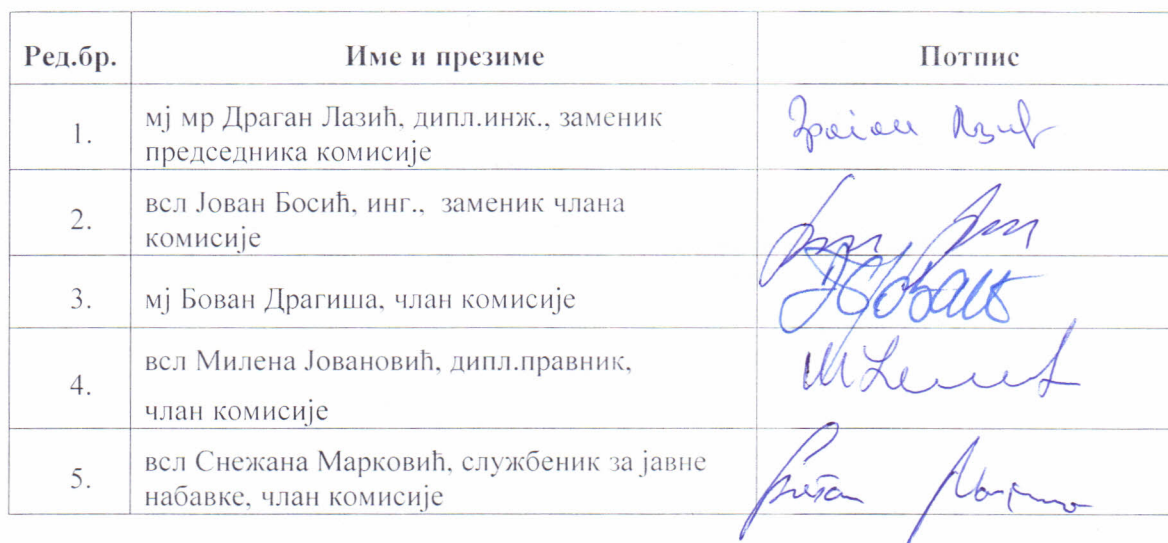 Ред.бр. Име и презиме Потпис
1. мј мр Драган Лазић, дипл.инж., заменик
председника комисије
2. всл Јован Босић, инг., заменик члана
комисије
3. мј Бован Драгиша, члан комисије
4. всл Милена Јовановић, дипл.правник,
члан комисије
5. всл Снежана Марковић, службеник за јавне
набавке, члан комисије